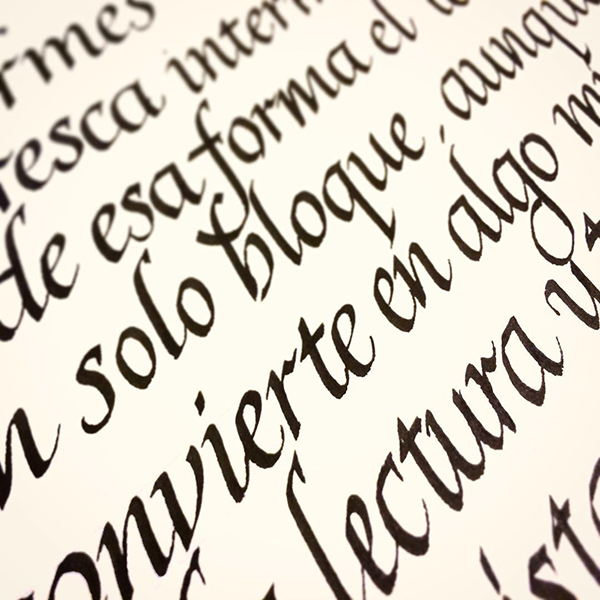 esca intern
de esa forma el
n solo bloque, aunqu
onvierte en algo m
lectura y